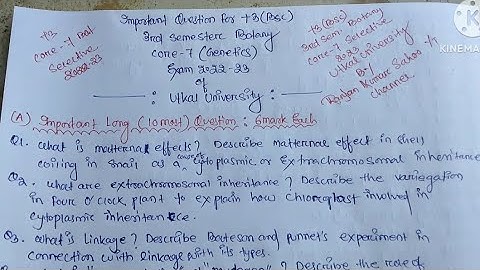 Important Question For +3(Bsc)
3rd semester Botany
core-7 (Genetics)
Exam 2022-23
of
Utkal University :
+3
core-7 Bot
Selective
2022-23
+3(BSc)
3rd sem Botany
core-7 Selective
2023
Utkal University
By
Ranjan Kumar Sahoo YT
channel
KINEMA
(A) Important Long (10 most) Question : 6mark Each
Q1. what is maternal effects? Describe matternal effect in shell
coiling in snail as a cytoplasmic or extrachromosomal inheritance
Q2. what are extrachromosomal inheritance? Describe the variegation
in four o'clock plant to explain how chloroplast involved in
cytoplasmic inheritance.
Q3. what is Linkage? Describe Bateson and punnet's experiment in
connection with linkage with its types.
? Describe the role of